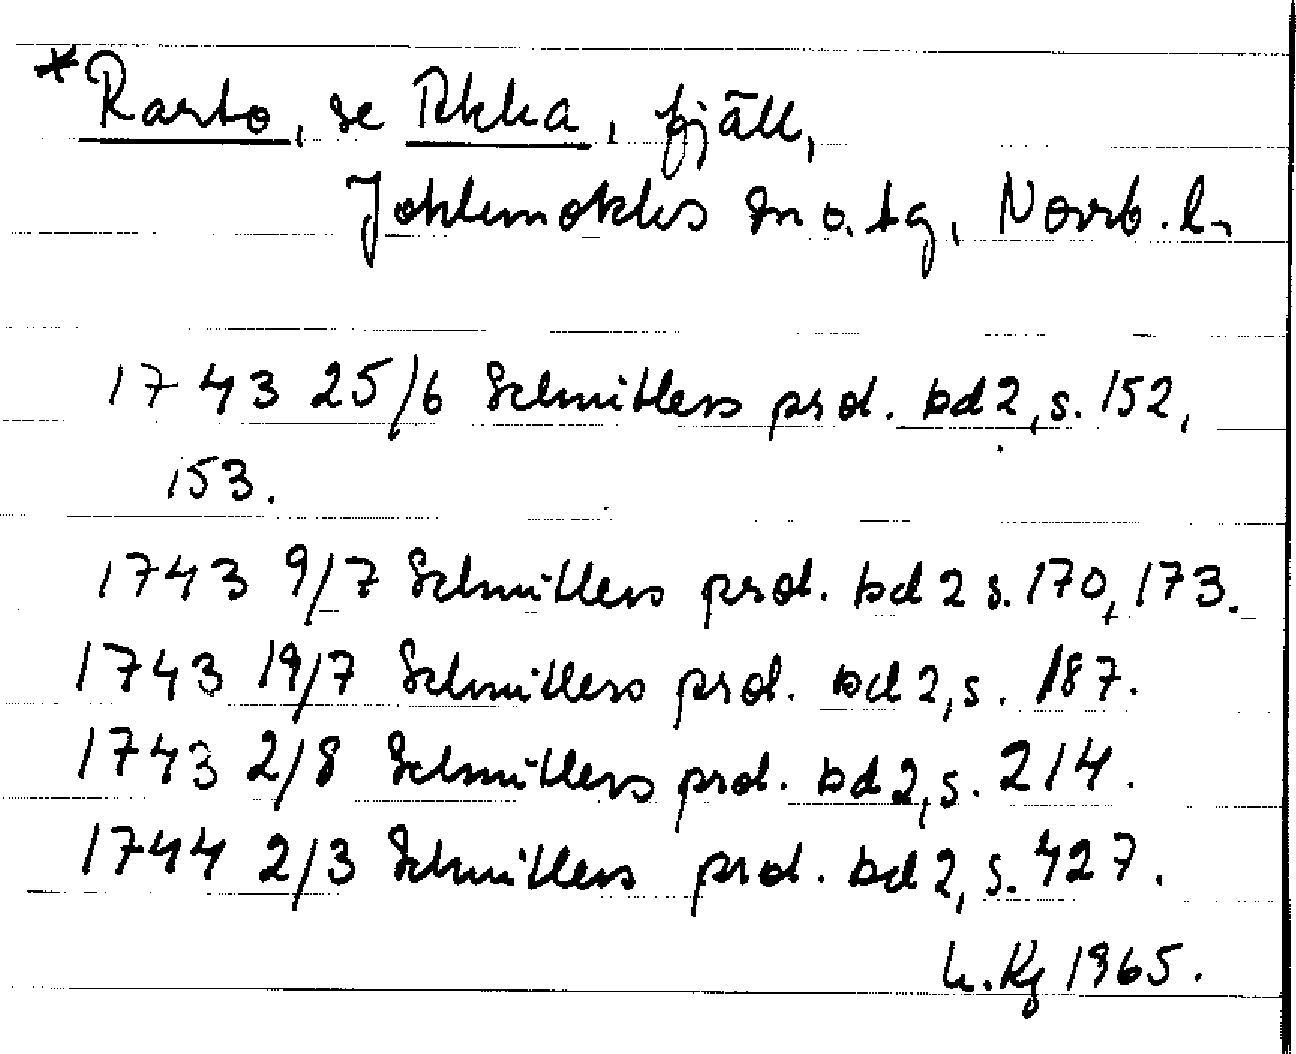 *Rasto, se Akka, fjäll,
Jokkmokks sn o. tg, Norrb. l.
1743 25/6 Schnitlers prot. bd 2, s. 152,
153.
1743 9/7 Schnitlers prot. bd 2 s. 170, 173.
1743 19/7 Schnitlers prot. bd 2, s. 187.
1743 2/8 Schnitlers prot. bd 2, s. 214.
1744 2/3 Schnitlers prot. bd 2, s. 427.
1965.